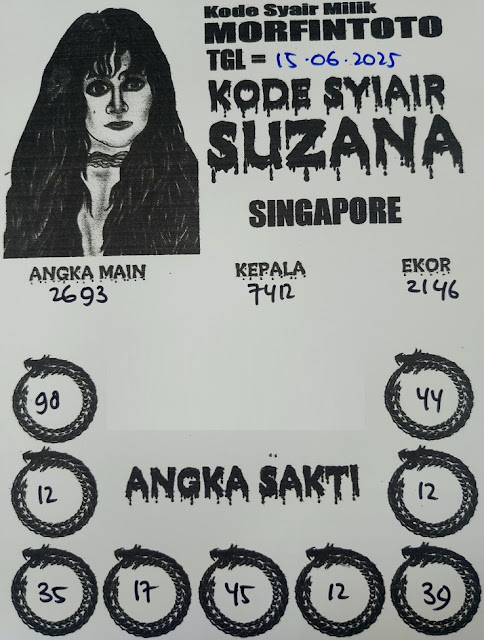 Kode Syair Milik
MORFINTOTO
TGL = 15.06.2025
KODE SYIAIR
SUZANA
SINGAPORE
ANGKA MAIN
2693
KEPALA
7412
EKOR
2146
98
44
12
ANGKA SAKTI
12
35
17
45
12
39